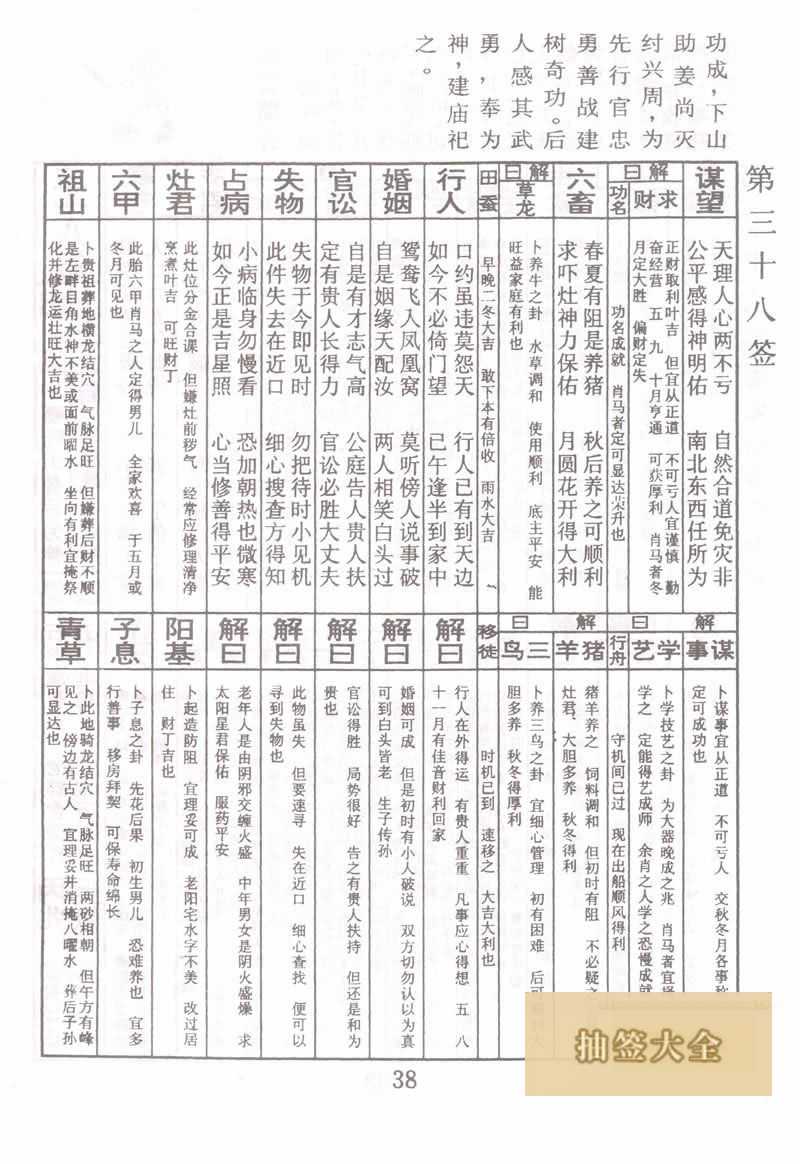 功成，下山
助姜尚灭
纣兴周，为
先行官忠
勇善战建
树奇功。后
人感其武
勇，奉为
神，建庙祀
之。
第三十八签
谋望
天理人心两不亏 自然合道免灾非
公平感得神明佑 南北东西任所为
解曰
求财
正财取利叶吉 但宜从正道 不可亏人宜谨慎 勤
奋经营 五 九 十月亨通 可获厚利 肖马者冬
月定大胜 偏财定失
功名
功名成就 肖马者定可显达荣升也
六畜
春夏有阻是养猪 秋后养之可顺利
求吓灶神力保佑 月圆花开得大利
解曰
草龙
卜养牛之卦 水草调和 使用顺利 底主平安 能
旺益家庭有利也
田蚕
早晚二冬大吉 敢下本有倍收 雨水大吉
行人
口约虽违莫怨天 行人已有到天边
如今不必倚门望 已午逢半到家中
婚姻
鸳鸯飞入凤凰窝 莫听傍人说事破
自是姻缘天配汝 两人相笑白头过
官讼
自是有才志气高 公庭告人贵人扶
定有贵人长得力 官讼必胜大丈夫
失物
失物于今即见时 勿把待时小见机
此件失去在近口 细心搜查方得知
占病
小病临身勿慢看 恐加朝热也微寒
如今正是吉星照 心当修善得平安
灶君
此灶位分金合课 但嫌灶前秽气 经常应修理清净
烹煮叶吉 可旺财丁
六甲
此胎六甲肖马之人定得男儿 全家欢喜 于五月或
冬月可见也
祖山
卜贵祖葬地横龙结穴 气脉足旺 但嫌葬后财不顺
是左畔目角水神不美或面前曜水 坐向有利宜掩祭
化并修龙运壮旺大吉也
解曰
谋事
卜谋事宜从正道 不可亏人 交秋冬月各事
定可成功也
学艺
卜学技艺之卦 为大器晚成之兆 肖马者宜
学之 定能得艺成师 余肖之人学之恐慢成就
行舟
守机间已过 现在出船顺风得利
解曰
猪羊
猪羊养之 饲料调和 但初时有阻 不必疑之
灶君、大胆多养 秋冬得利
三鸟
卜养三鸟之卦 宜细心管理 初有困难 后可
胆多养 秋冬得厚利
移徙
时机已到 速移之 大吉大利也
解曰
行人在外得运 有贵人重重 凡事应心得想 五 八
十一月有佳音财利回家
解曰
婚姻可成 但是初时有小人破说 双方切勿认以为真
可到白头皆老 生子传孙
解曰
官讼得胜 局势很好 告之有贵人扶持 但还是和为
贵也
解曰
此物虽失 但要速寻 失在近口 细心查找 便可以
寻到失物也
解曰
老年人是由阴邪交缠火盛 中年男女是阴火盛燥 求
太阳星君保佑 服药平安
阳基
卜起造防阻 宜理妥可成 老阳宅水字不美 改过居
住 财丁吉也
子息
卜子息之卦 先花后果 初生男儿 恐难养也 宜多
行善事 移房拜契 可保寿命绵长
青草
卜此地骑龙结穴 气脉足旺 两砂相朝 但午方有峰
见之 傍边有古人 宜理妥并消掩八曜水 葬后子孙
可显达也
38
抽签大全